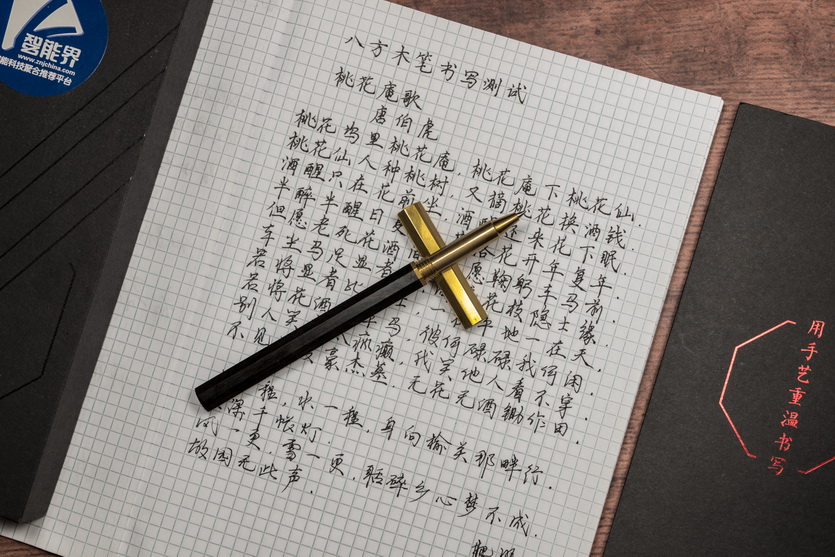 智能界
www.znjchina.com
能科技聚合推荐平台
八方木笔书写测试
桃花庵歌
唐伯虎
桃花坞里桃花庵,桃花庵下桃花仙.
桃花仙人种桃树,又摘桃花换酒钱.
酒醒只在花前坐,酒还来花下眠.
半醉半醒日复花开年复年.
但愿老死花酒愿鞠躬车马前.
车尘马足显者花枝隐士缘.
若将显者比一在平地一在天.
若将花酒车马,彼何碌碌我何闲.
别人笑疯癫,我笑他人看不穿.
不见豪杰墓,无花无酒锄作田.
程,水一程,身向榆关那畔行.
深千帐灯.
风一更,雪一更,聒碎乡心梦不成.
故园无此声.
用手艺重温书写